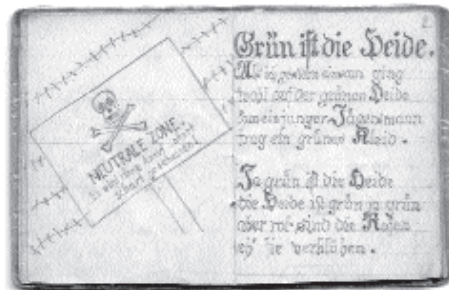 NEUTRALE ZONE.
scharf geschossen!
2
Grün ist die Heide.
ging
wohl auf der grünen Heide
junger Jägersmann
trug ein grünes Kleid.
Ja grün ist die Heide
die Heide ist grün ja grün
aber rot sind die Rosen
eh' sie verblühen.